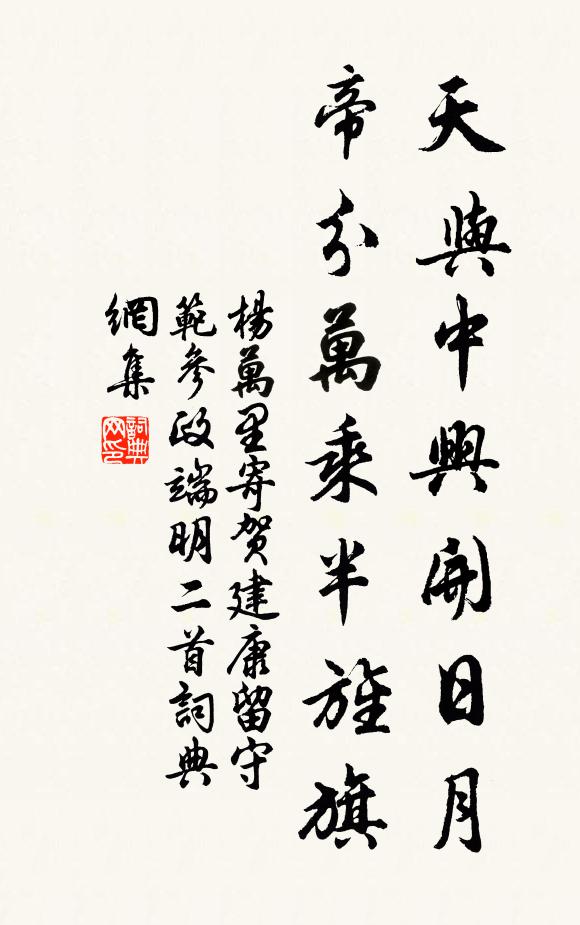 天與中興開日月
帝分萬乘半旌旗
楊萬里寄贺建康留守
範參政端明二首詞典
網集
詞典
网印